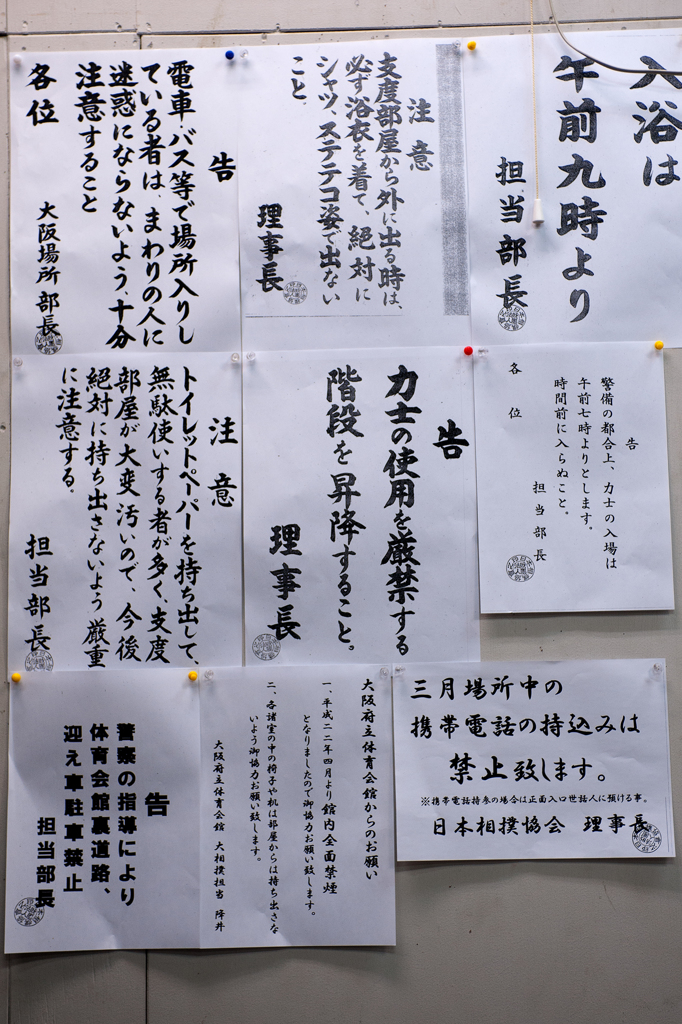 入浴は
午前九時より
担当部長
注意
支度部屋から外に出る時は、
必ず浴衣を着て、絶対に
シャツ、ステテコ姿で出ない
こと。
理事長
告
電車・バス等で場所入りし
ている者は、まわりの人に
迷惑にならないよう、十分
注意すること
各位
大阪場所部長
告
警備の都合上、力士の入場は
午前七時よりとします。
時間前に入らぬこと。
担当部長
各位
告
力士の使用を厳禁する
階段を昇降すること。
理事長
注意
トイレットペーパーを持ち出して、
無駄使いする者が多く、支度
部屋が大変汚いので、今後
絶対に持ち出さないよう厳重
に注意する。
担当部長
三月場所中の
携帯電話の持込みは
禁止致します。
※携帯電話持参の場合は正面入口世話人に預ける事。
日本相撲協会 理事長
大阪府立体育会館からのお願い
一、平成二二年四月より館内全面禁煙
となりましたので御協力お願い致します。
二、各諸室の中の椅子や机は部屋からは持ち出さな
いよう御協力お願い致します。
大阪府立体育会館 大相撲担当 降井
告
警察の指導により
体育会館裏道路、
迎え車駐車禁止
担当部長